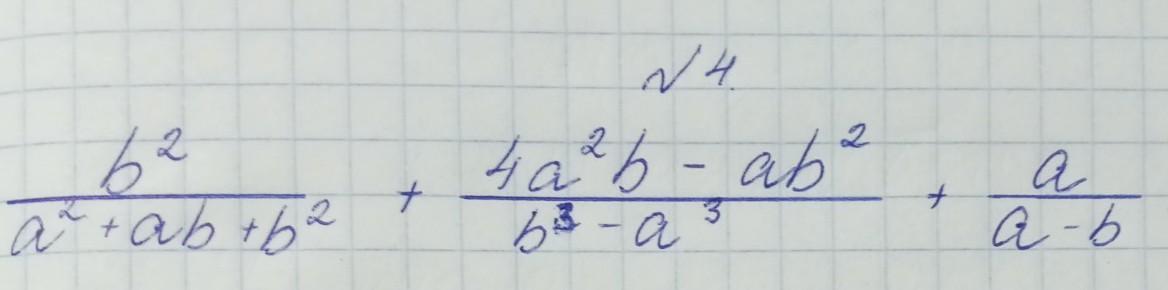 №4.
b²/(a² + ab + b²) + (4a²b - ab²)/(b³ - a³) + a/(a - b)